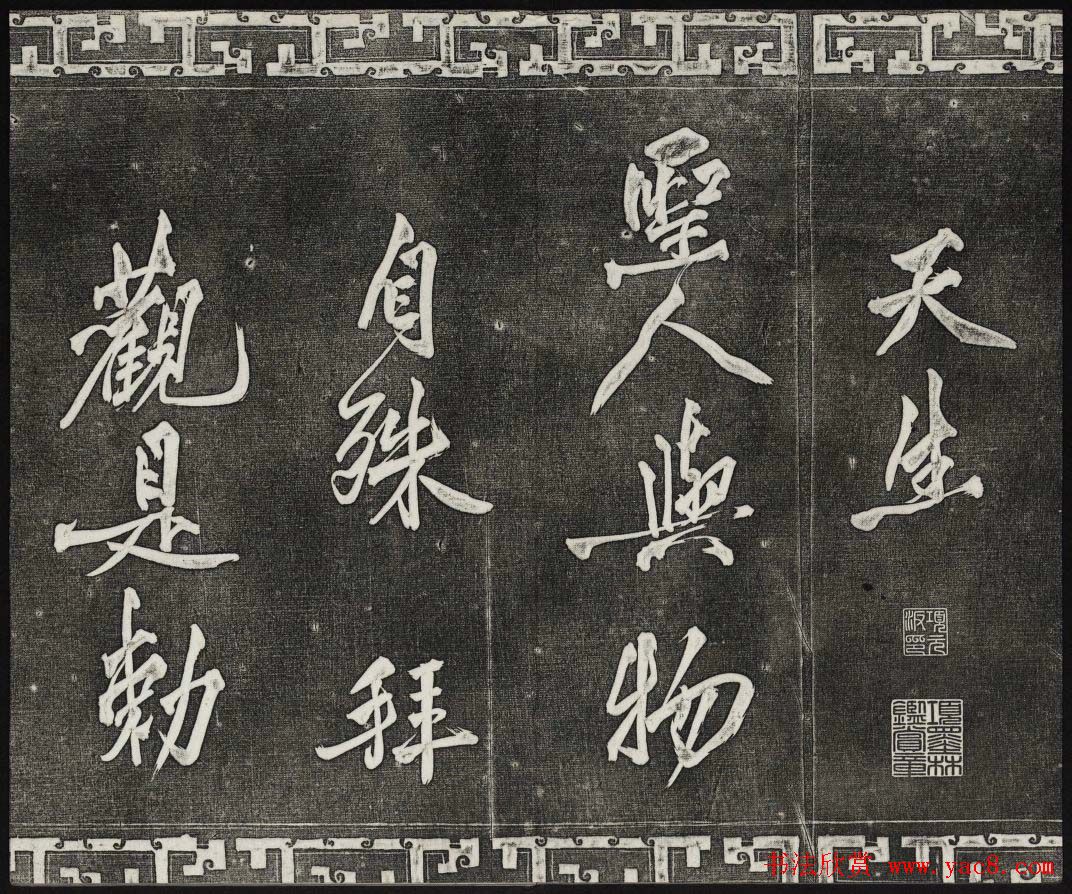 天生
項元汴印
項墨林鑑賞章
聖人與物
自殊拜
觀是勅
书法欣赏 www.yac8.com